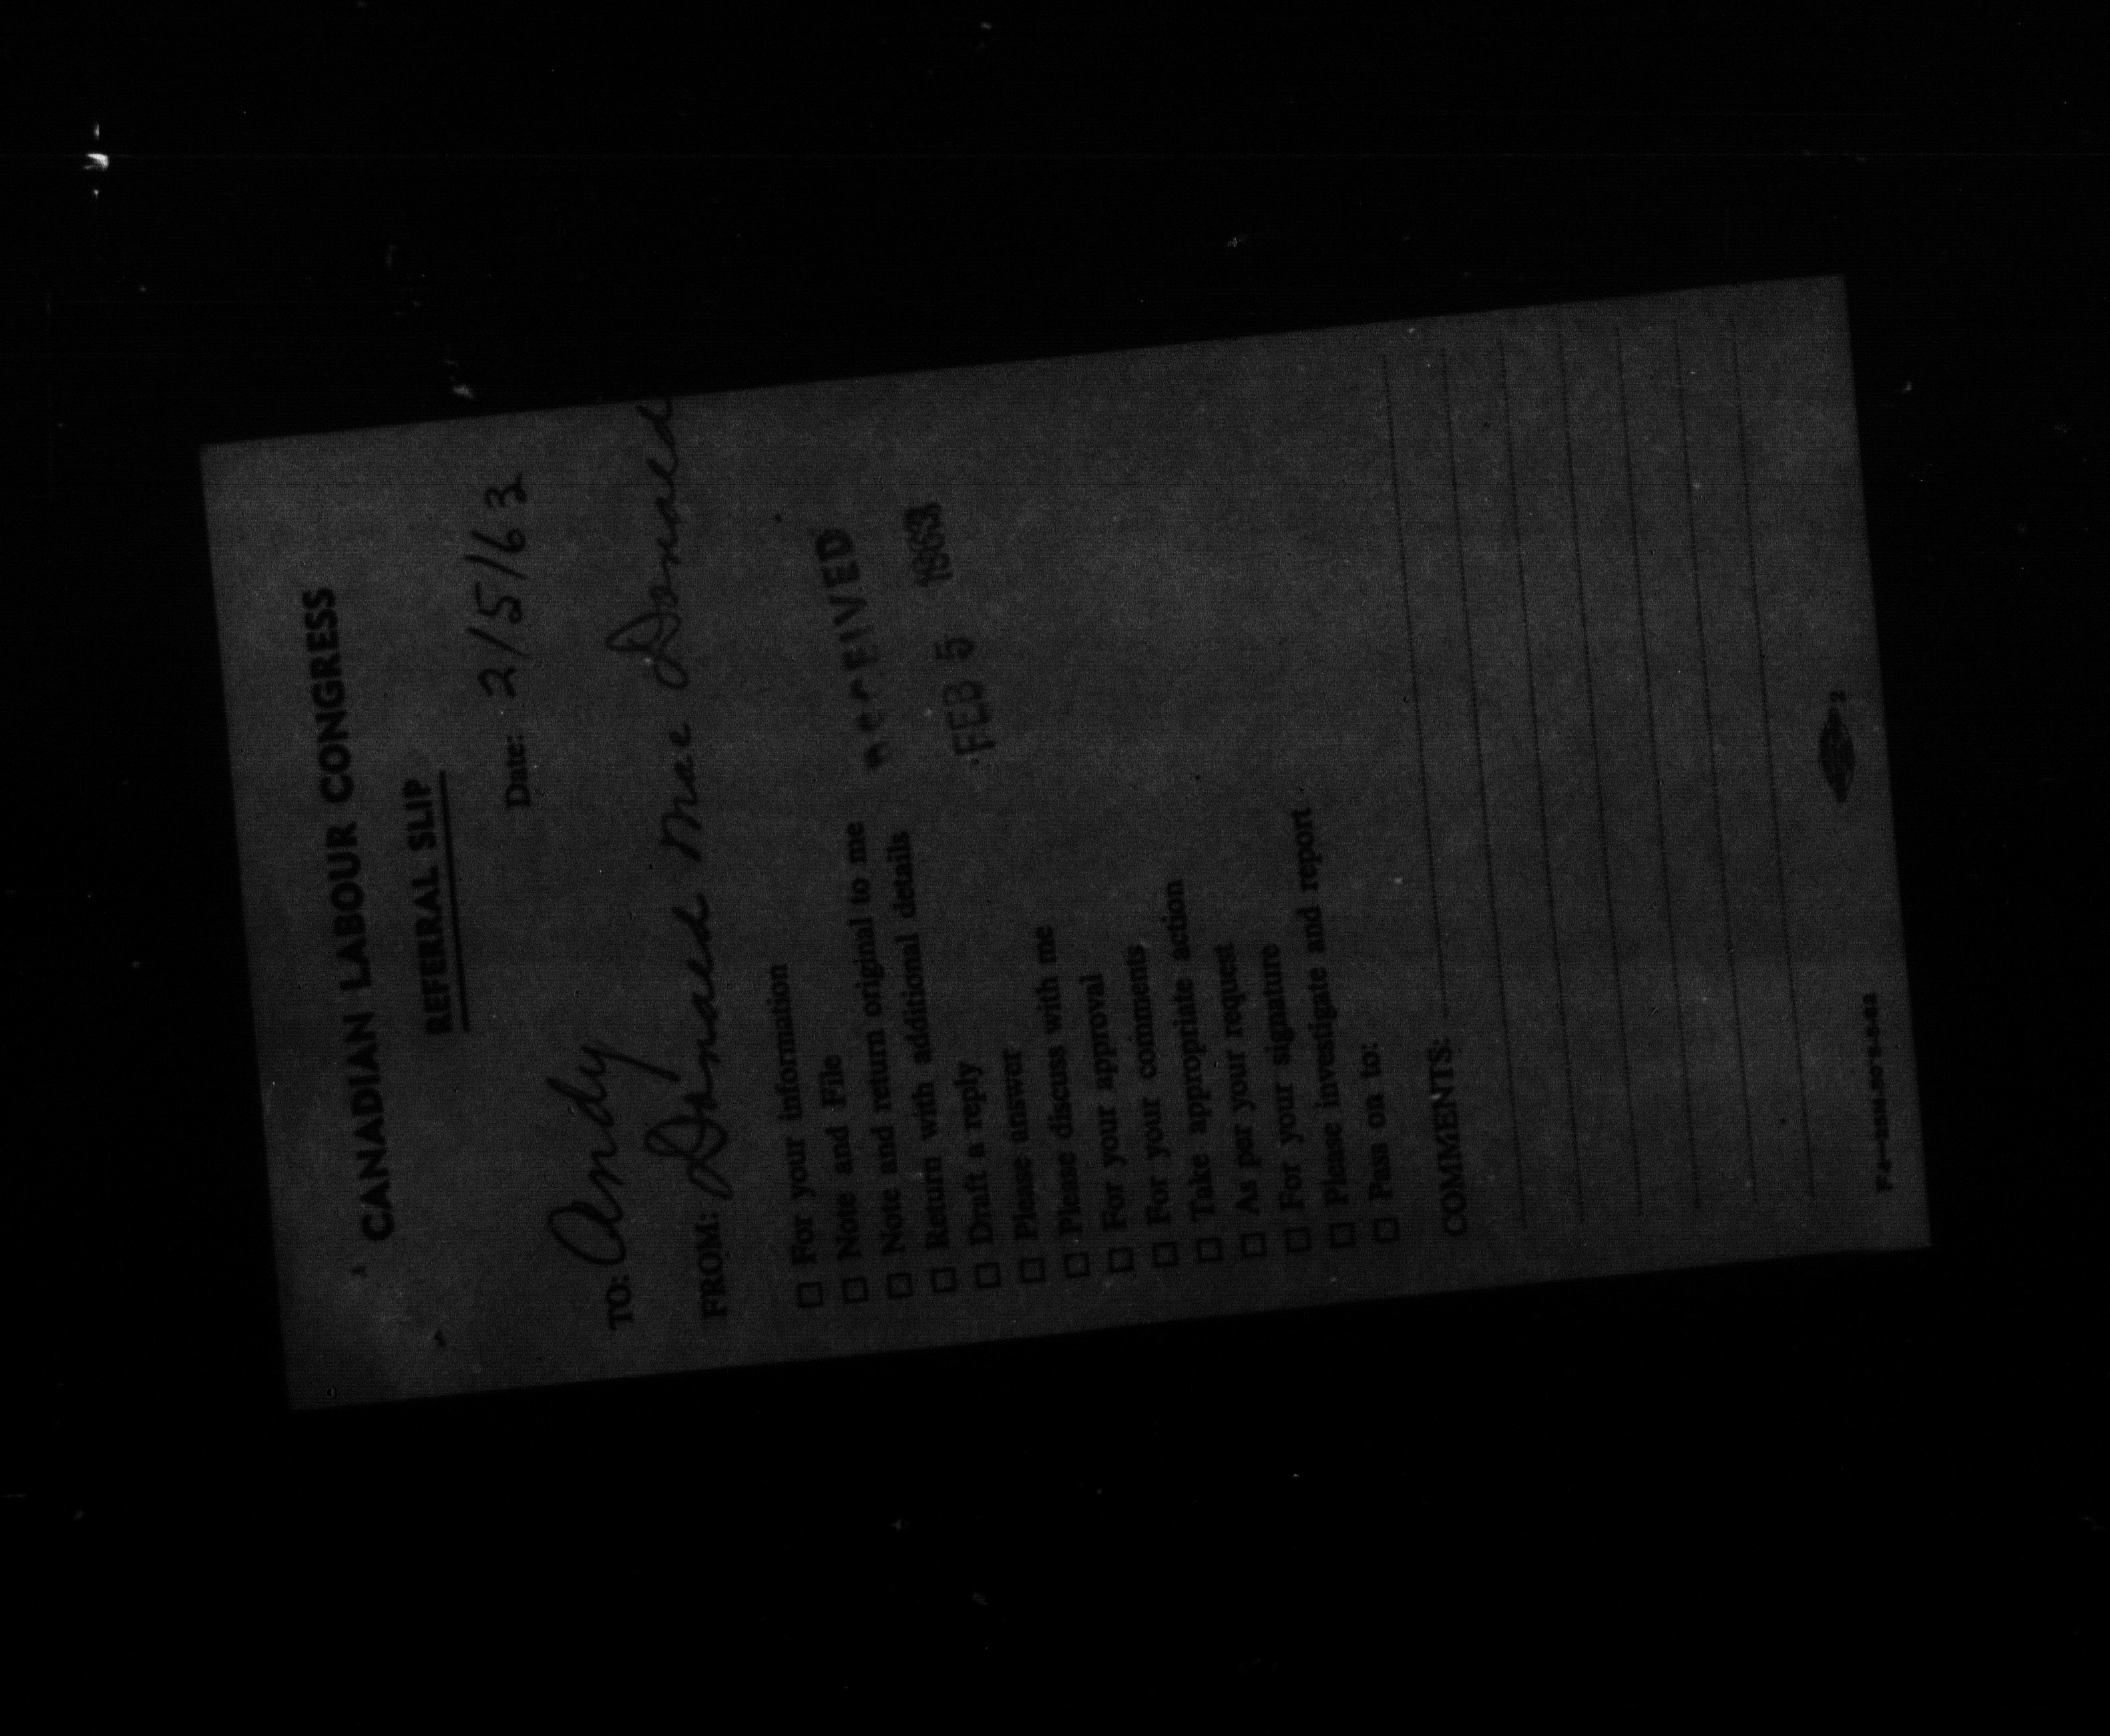 CANADIAN LABOUR CONGRESS
REFERRAL SLIP
Date: 2/5/63
TO: Andy
FROM: Donald MacDonald
☐ For your information
☐ Note and File
☐ Note and return original to me
☐ Return with additional details
☐ Draft a reply
☐ Please answer
☐ Please discuss with me
☐ For your approval
☐ For your comments
☐ Take appropriate action
☐ As per your request
☐ For your signature
☐ Please investigate and report
☐ Pass on to:
RECEIVED
FEB 5 1963
COMMENTS:
2